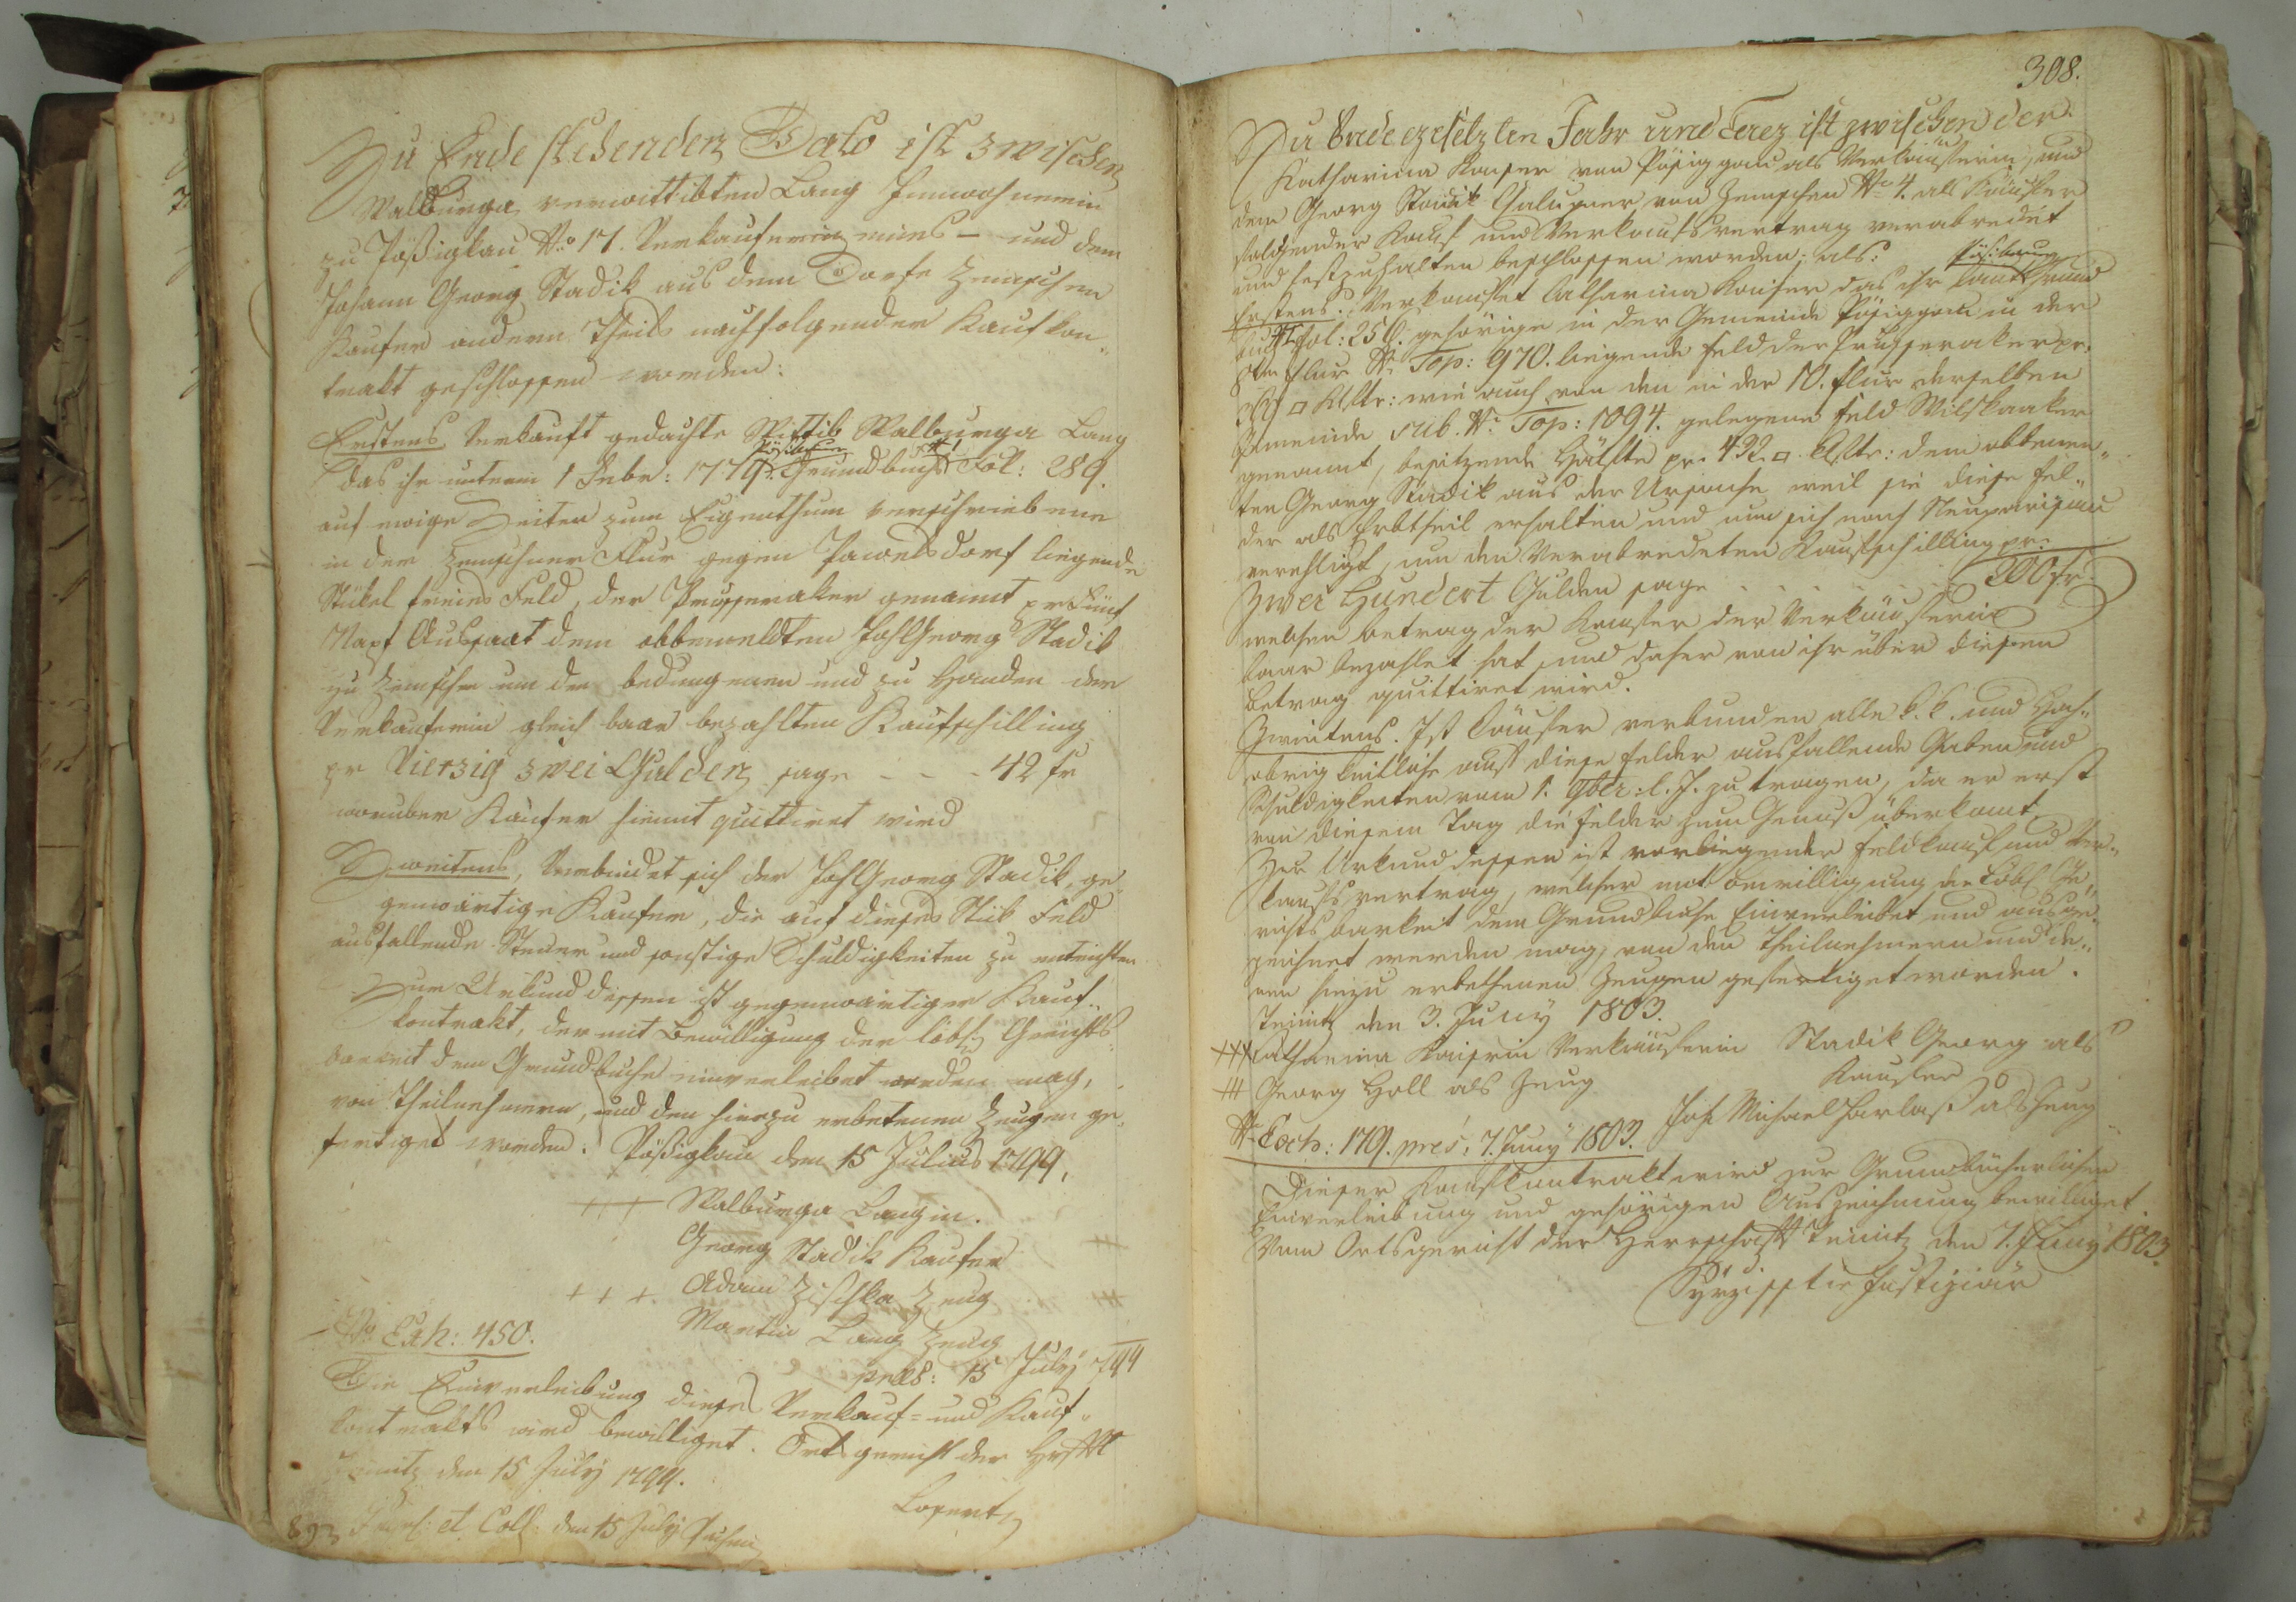 Zu Ende stehenden Dato ist zwischen
Walburga verwittibten Lang Innwohnerin
zu Pößigkau No 17. Verkauferin eines – und dem
Johann Georg Stadik aus dem Dorfe Zemschen
Kaufer andern Theils nachfolgender Kaufkon„
trakt geschlossen worden:
Erstens, Verkauft gedachte Wittib Walburga Lang
das ihr unterm 1 Febr: 1779. Grundbuch Fol: 289.
auf ewige Zeiten zum Eigenthum verschriebene
in der Zemschner Flur gegen Pawelsdorf liegende
Stükel freies Feld, der genannt pr Fünf
Napf Aussaat dem obbemeldten Joh Georg Stadik
zu Zemschen um den bedungenen und zu Handen der
Verkauferin gleich baar bezahlten Kaufschilling
pr Vierzig zwei Gulden sage - - - 42 fr
worüber Käufer hiemit quittiret wird
Zweitens, Verbindet sich der Joh Georg Stadik, ge„
genwärtige Kaufer, die auf dieses Stük Feld
ausfallende Steuer und sonstige Schuldigkeiten zu entrichten
Zur Urkund dessen ist gegenwärtiger Kauf„
kontrakt, der mit Bewilligung der löbl. Gerichts„
barkeit dem Grundbuche einverleibet werden mag,
von Theilnehmern, und den hierzu erbetenen Zeugen ge„
fertiget worden. Pößigkau den 15 Julius 1799.
+++ Walburga Langin.
Georg Stadik Kaufer
+++ Adam Zischka Zeug
Martin Lang Zeug
No Exh: 450.
præs: 15 July 799
Die Einverleibung dieses Verkauf- und Kauf„
kontrakts wird bewilliget. Ortsgericht der Hrschft
Teinitz den 15 July 1799.
et Coll: den 15 July
308.
Zu Ende gesetzten Jahr und Tag ist zwischen der
Katharina Kaiser von Pösiggau als Verkäuferin, und
dem Georg Stadik Chalupner von Zemschen No 4. als Käufer
folgender Kauf und Verkaufsvertrag verabredet
und festzuhalten beschlossen worden; als:
Pösikauer
Erstens. Verkaufet Catharina Kaiser das ihr laut Grund
buch Fol: 250. gehörige in der Gemeinde Pösiggau in der
Flur No Top: 970. liegende Feld der pr.
□ Klftr: wie auch von den in der 10. Flur derselben
Gemeinde sub. No Top: 1094. gelegene Feld
genannt, besitzende Hälfte pr. 432. □ Klftr: dem obbenen„
ten Georg Stadik aus der Ursache weil sie diese Fel„
der als Erbtheil erhalten und nun sich nach
verehligt, um den Verabredeten Kaufschilling pr.
Zwei Hundert Gulden sage . . . . 200 fr.
welchen betrag der Kaufer der Verkäuferin
baar bezahlet hat, und daher von ihr über diesen
Betrag quittiret wird.
Zweitens. Ist Käufer verbunden alle k. k. und Hoch„
obrigkeitliche auf diese Felder ausfallende Gaben und
Schuldigkeiten vom 1. 9ber: l. J. zu tragen, da er erst
von diesem Tag die Felder zum Genuß überkomt.
Zur Urkund dessen ist vorliegender Feldkauf und Ver„
kaufsvertrag, welcher mit Bewilligung der Löbl. Ge„
richtsbarkeit dem Grundbuche Einverleibet und ausge„
zeichnet werden mag, von den Theilnehmern und de„
nen hiezu erbethenen Zeugen gefertiget worden.
Teinitz den 3. Juny 1803.
+++ Catharina Kaiserin Verkäuferin Stadik Georg als
Kaufer
+++ Georg Holl als Zeug
Joh Michael Harlaß als Zeug
No Exh: 179. præs: 7. Juny 1803.
Dieser Kaufkontrakt wird zur Grundbücherlichen
Einverleibung und gehörigen Auszeichnung bewilliget.
Vom Ortsgericht der Herrschaft Teinitz den 7. Juny 1803.
Justiziär